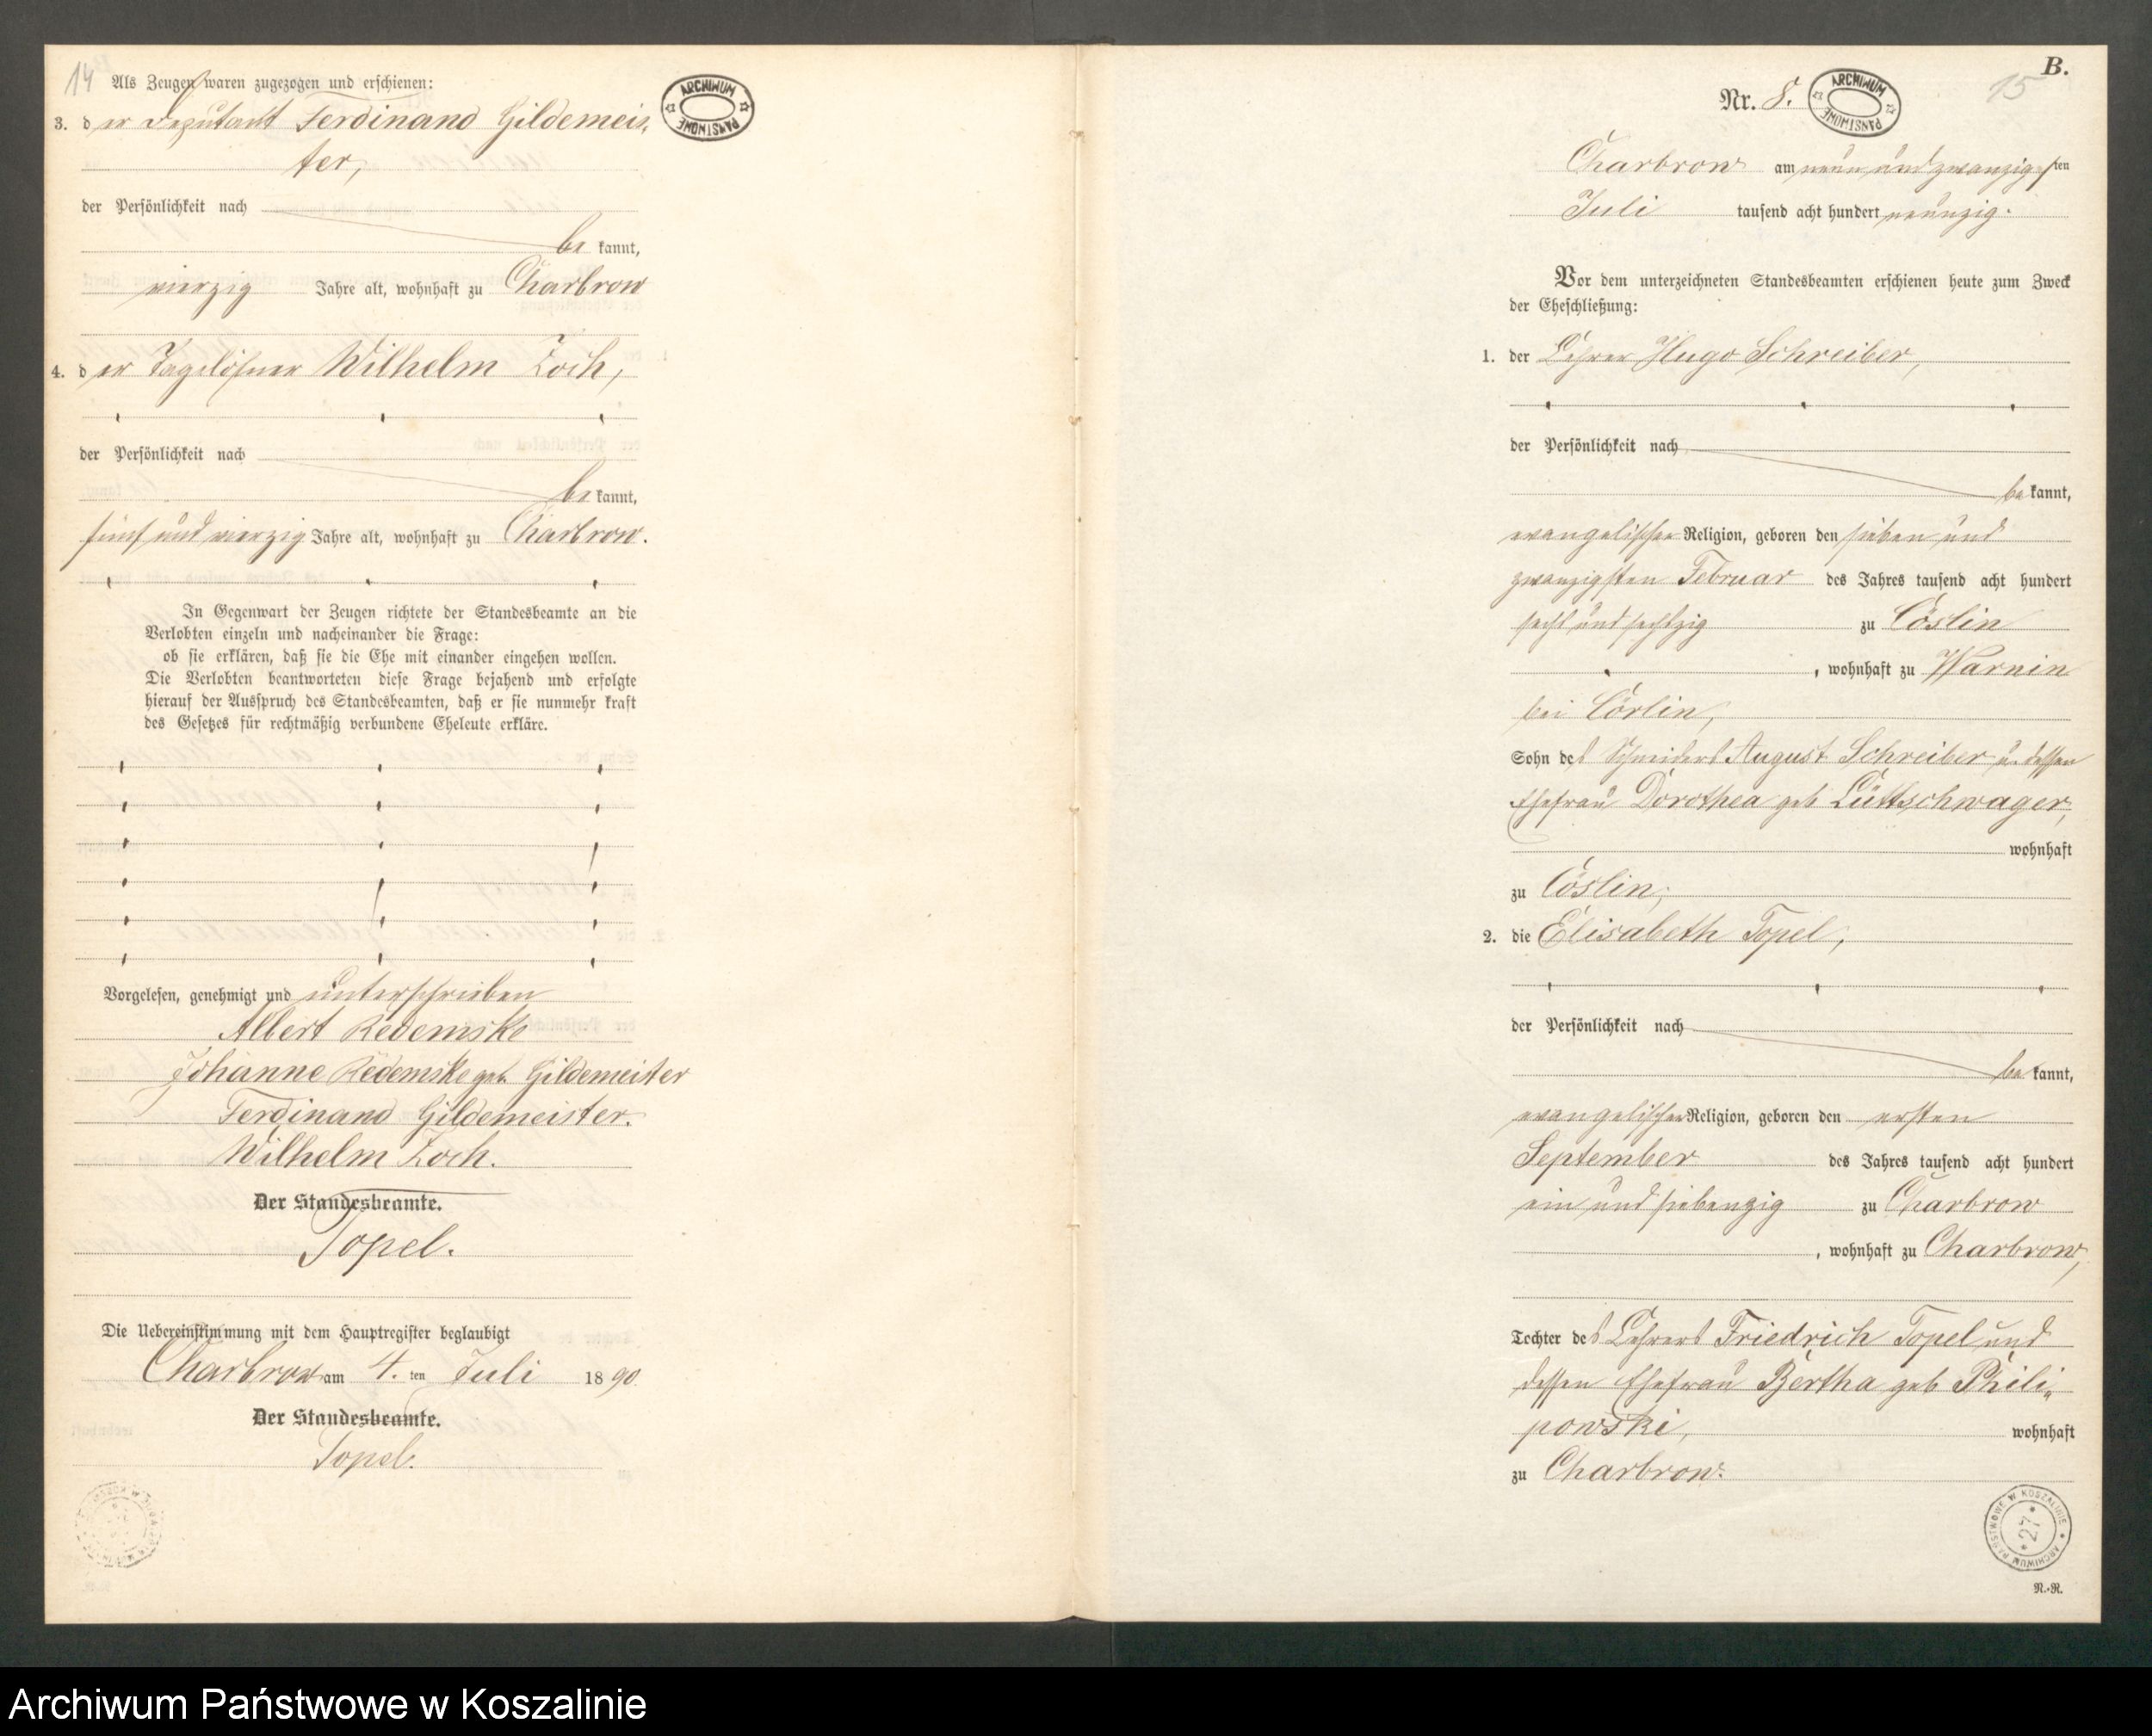 14
Als Zeugen waren zugezogen und erschienen:
3. der Deputant Ferdinand Gildemeis,
ter,
der Persönlichkeit nach
be kannt,
vierzig Jahre alt, wohnhaft zu Charbrow
4. der Tagelöhner Wilhelm Zoch,
der Persönlichkeit nach
be kannt,
fünf und vierzig Jahre alt, wohnhaft zu Charbrow.
In Gegenwart der Zeugen richtete der Standesbeamte an die
Verlobten einzeln und nacheinander die Frage:
ob sie erklären, daß sie die Ehe mit einander eingehen wollen.
Die Verlobten beantworteten diese Frage bejahend und erfolgte
hierauf der Ausspruch des Standesbeamten, daß er sie nunmehr kraft
des Gesetzes für rechtmäßig verbundene Eheleute erkläre.
Vorgelesen, genehmigt und unterschrieben
Albert Redemske
Johanne Redemske geb. Gildemeister
Ferdinand Gildemeister.
Wilhelm Zoch.
Der Standesbeamte.
Topel.
Die Uebereinstimmung mit dem Hauptregister beglaubigt
Charbrow am 4. ten Juli 18 90.
Der Standesbeamte.
Topel.
ARCHIWUM PAŃSTWOWE
B.
15
Nr. 8.
ARCHIWUM PAŃSTWOWE
Charbrow am neun und zwanzigsten
Juli tausend acht hundert neunzig.
Vor dem unterzeichneten Standesbeamten erschienen heute zum Zweck
der Eheschließung:
1. der Lehrer Hugo Schreiber,
der Persönlichkeit nach
be kannt,
evangelischer Religion, geboren den sieben und
zwanzigsten Februar des Jahres tausend acht hundert
sechs und sechszig zu Cöslin
, wohnhaft zu Warnin
bei Cörlin,
Sohn des Schneiders August Schreiber u. dessen
Ehefrau Dorothea geb Lüttschwager,
wohnhaft
zu Cöslin,
2. die Elisabeth Topel,
der Persönlichkeit nach
be kannt,
evangelischer Religion, geboren den ersten
September des Jahres tausend acht hundert
ein und siebenzig zu Charbrow
, wohnhaft zu Charbrow,
Tochter des Lehrers Friedrich Topel und
dessen Ehefrau Bertha geb Phili„
powski, wohnhaft
zu Charbrow.
ARCHIWUM PAŃSTWOWE W KOSZALINIE
*27*
N.-R.
Archiwum Państwowe w Koszalinie